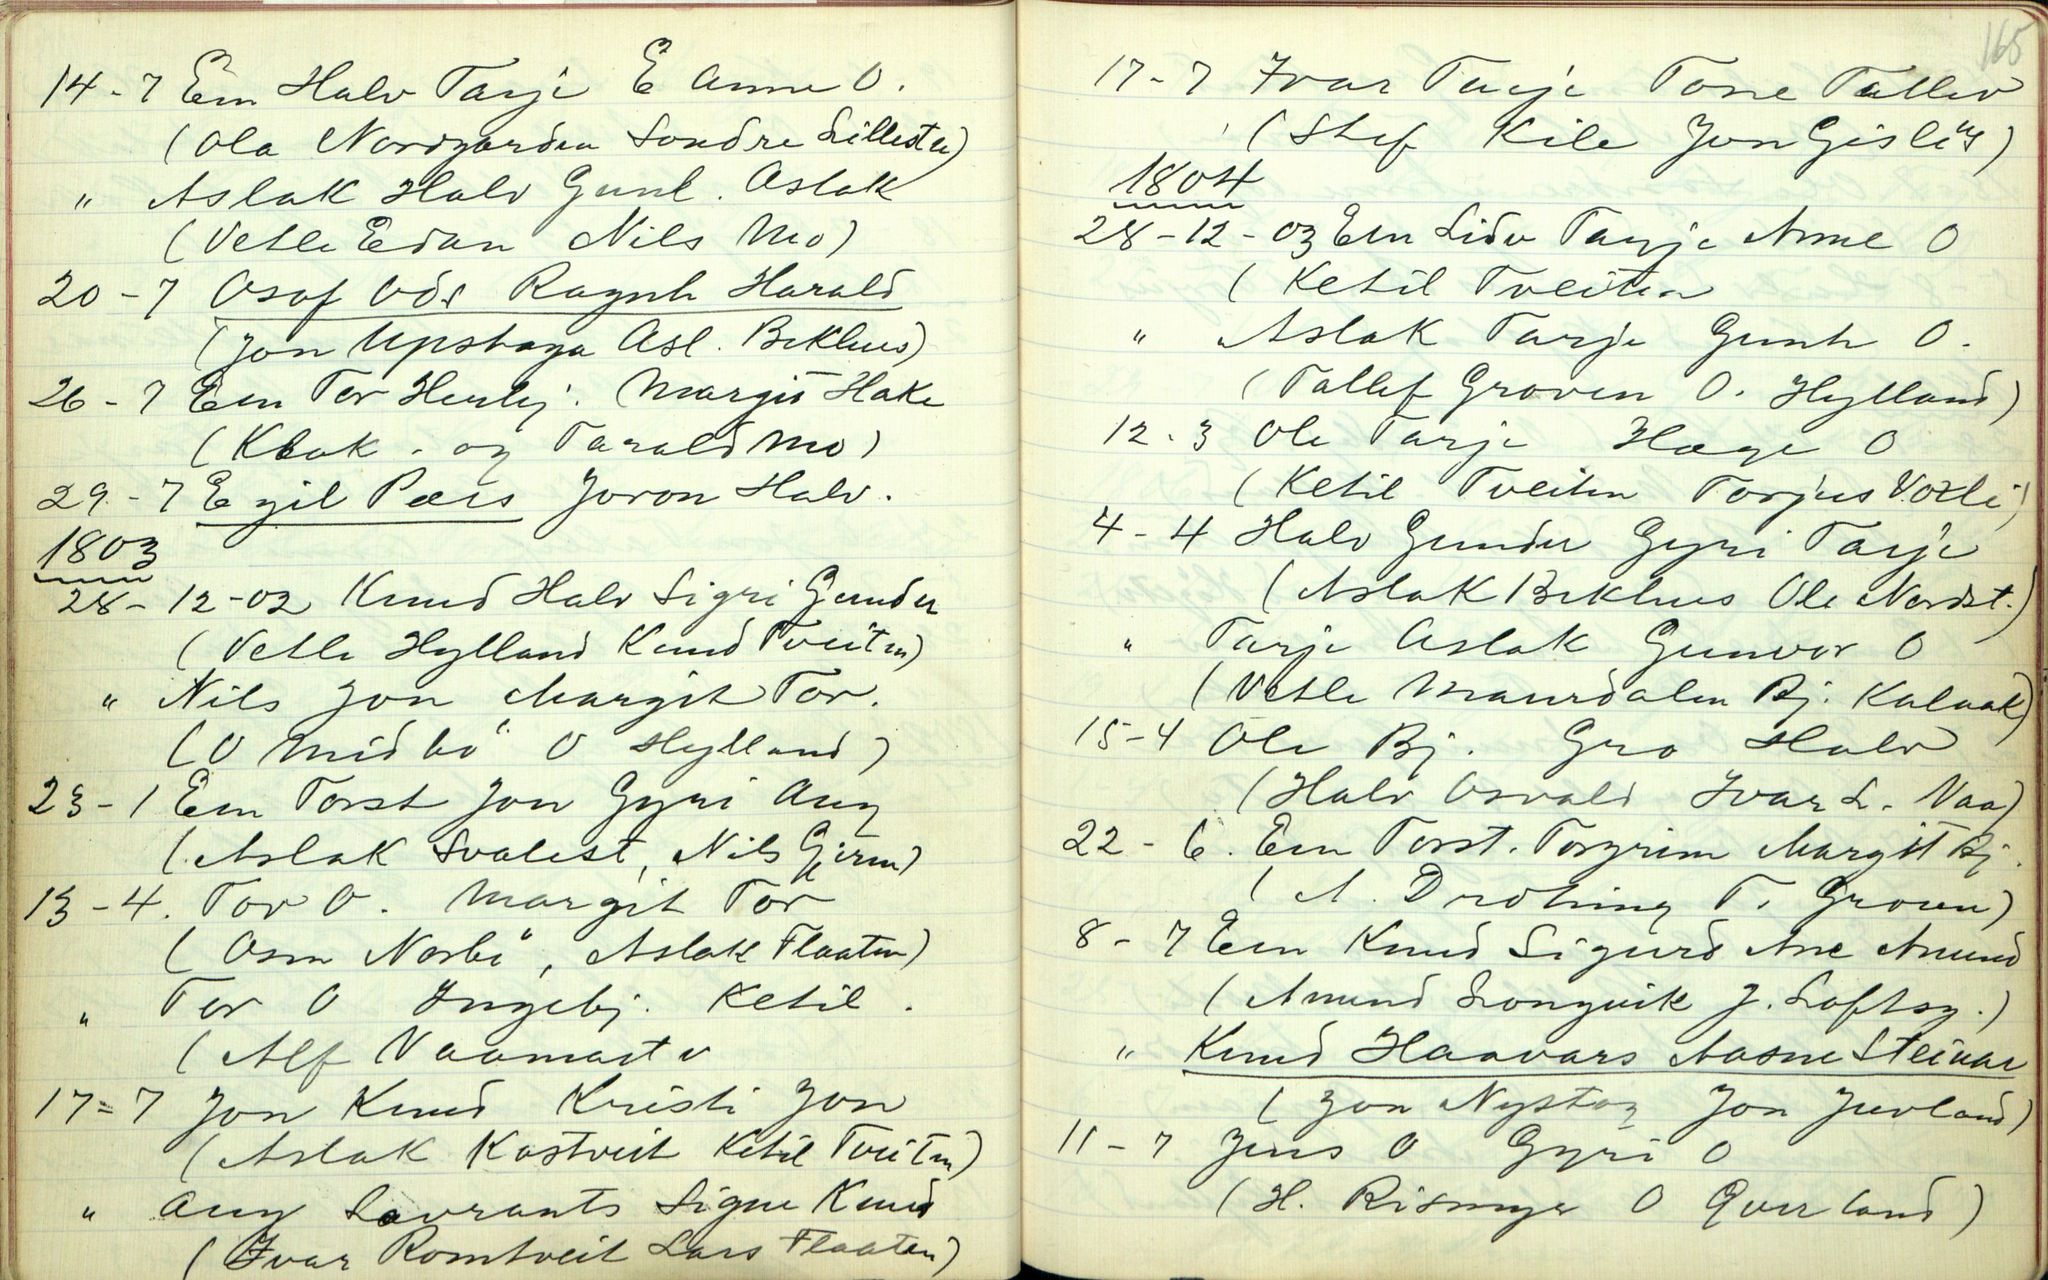 14-7 Em Halv Tarje E Anne O.
(Ola Nordgarden Sondre Lillestu)
" Aslak Halv Gunl. Aslak
(Vetle Edan Nils Mo)
20-7 Osof Ods Ragnh Harald
(Jon Upstaga Asl. Beklius)
26-7 Em Tor Herlej. Margit Hake
(Kbak. og Tarald Mo)
29-7 Egil Pærs Joron Halv.
1803
28-12-02 Knud Halv Sigri Gunder
(Vetle Hylland Knud Tveiten)
" Nils Jon Margit Tor.
(O Midbö O Hylland)
23-1 Em Torst Jon Gyri Aug
(Aslak Svalest, Nils Gjerm)
13-4. Tor O. Margit Tor
(Osm Norbö, Aslak Flaaten)
" Tor O Ingebj. Ketil.
(Alf Vaamartv
17=7 Jon Knud Kristi Jon
(Aslak Kostveit Ketil Tveiten)
" Aug Lavrants Signe Knud
(Ivar Romtveit Lars Flaaten)
165
17-7 Ivar Tarje Tone Tallev
(Stef Kile Jon Gisleus)
1804
28-12-03 Em Lidv Tarje Anne O
(Ketil Tveiten
" Aslak Tarje Gunh O.
(Tallef Groven O. Hylland)
12-3 Ole Tarje Hæge O
(Ketil Tveiten Torjus Vaxli)
4-4 Halv Gunder Gyri Tarje
(Aslak Beklius Ole Nordst.)
" Tarje Aslak Gunvor O
(Vetle Maurdalen Bj. Kalaak)
15-4 Ole Bj. Gro Halv
(Halv Osvald Ivar L. Vaa)
22-6. Em Torst. Torgrim Margit Bj.
(A. Drotning T. Groven)
8-7 Em Knud Sigurd Ane Amund
(Amund Longvik J. Loftsg.)
" Knud Haavars Aasne Steinar
(Jon Nystog Jon Juvland)
11-7 Jens O Gyri O
(H. Rismyr O Qverland)